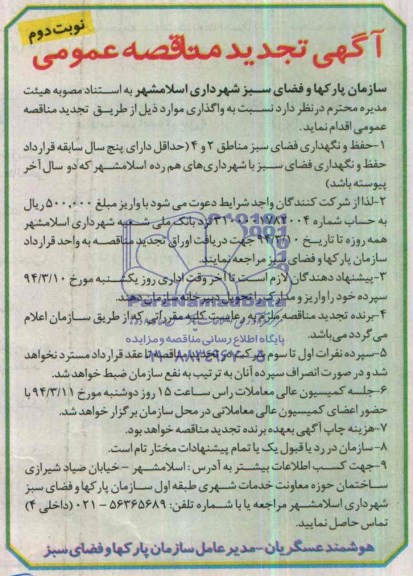 نوبت دوم
آگهی تجدید مناقصه عمومی
سازمان پارکها و فضای سبز شهرداری اسلامشهر به استناد مصوبه هیئت
مدیره محترم درنظر دارد نسبت به واگذاری موارد ذیل از طریق تجدید مناقصه
عمومی اقدام نماید.
۱-حفظ و نگهداری فضای سبز مناطق ۲ و ۴ (حداقل دارای پنج سال سابقه قرارداد
حفظ و نگهداری فضای سبز با شهرداری‌های هم رده اسلامشهر که دو سال آخر
پیوسته باشد)
۲-لذا از شرکت کنندگان واجد شرایط دعوت می شود با واریز مبلغ ۵۰۰,۰۰۰ ریال
به حساب شماره نزد بانک ملی شعبه شهرداری اسلامشهر
همه روزه تا تاریخ ۹۴/۳/۱۰ جهت دریافت اوراق تجدید مناقصه به واحد قرارداد
سازمان پارکها و فضای سبز مراجعه نمایند.
۳-پیشنهاد دهندگان لازم است تا آخر وقت اداری روز یکشنبه مورخ ۹۴/۳/۱۰
سپرده خود را واریز و مدارک را تحویل دبیرخانه سازمان دهند.
۴-برنده تجدید مناقصه ملزم به رعایت کلیه مقرراتی که از طریق سازمان اعلام
می گردد می‌باشد.
۵-سپرده نفرات اول تا سوم شرکت در تجدید مناقصه تا عقد قرارداد مسترد نخواهد
شد و در صورت انصراف سپرده آنان به ترتیب به نفع سازمان ضبط خواهد شد.
۶-جلسه کمیسیون عالی معاملات راس ساعت ۱۵ روز دوشنبه مورخ ۹۴/۳/۱۱ با
حضور اعضای کمیسیون عالی معاملاتی در محل سازمان برگزار خواهد شد.
۷-هزینه چاپ آگهی بعهده برنده تجدید مناقصه خواهد بود.
۸-سازمان در رد یا قبول یک یا تمام پیشنهادات مختار تام است.
۹-جهت کسب اطلاعات بیشتر به آدرس : اسلامشهر - خیابان صیاد شیرازی
ساختمان حوزه معاونت خدمات شهری طبقه اول سازمان پارکها و فضای سبز
شهرداری اسلامشهر مراجعه یا با شماره تلفن: ۵۶۳۶۵۶۸۹ - ۰۲۱ (داخلی ۴)
تماس حاصل نمایید.
هوشمند عسگریان-مدیر عامل سازمان پارکها و فضای سبز
ParsNamadData
پایگاه اطلاع رسانی مناقصه و مزایده